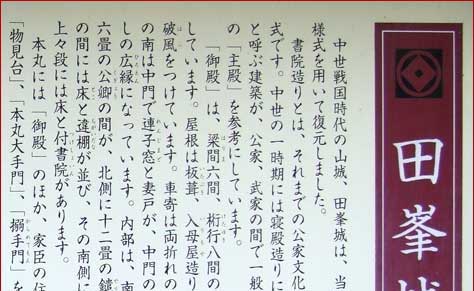 田峯城
中世戦国時代の山城、田峯城は、当
様式を用いて復元しました。
書院造りとは、それまでの公家文化
式です。中世の一時期には寝殿造りに
と呼ぶ建築が、公家、武家の間で一般
の「主殿」を参考にしています。
「御殿」は、梁間六間、桁行八間の
しています。屋根は板葺、入母屋造り
破風をつけています。車寄は両折れの
の南は中門で連子窓と妻戸が、中門の
しの広縁になっています。内部は、南
六畳の公卿の間が、北側に十二畳の鏡
の間には床と違棚が並び、その南側に
上々段には床と付書院があります。
本丸には「御殿」のほか、家臣の住
「物見台」、「本丸大手門」、「搦手門」を